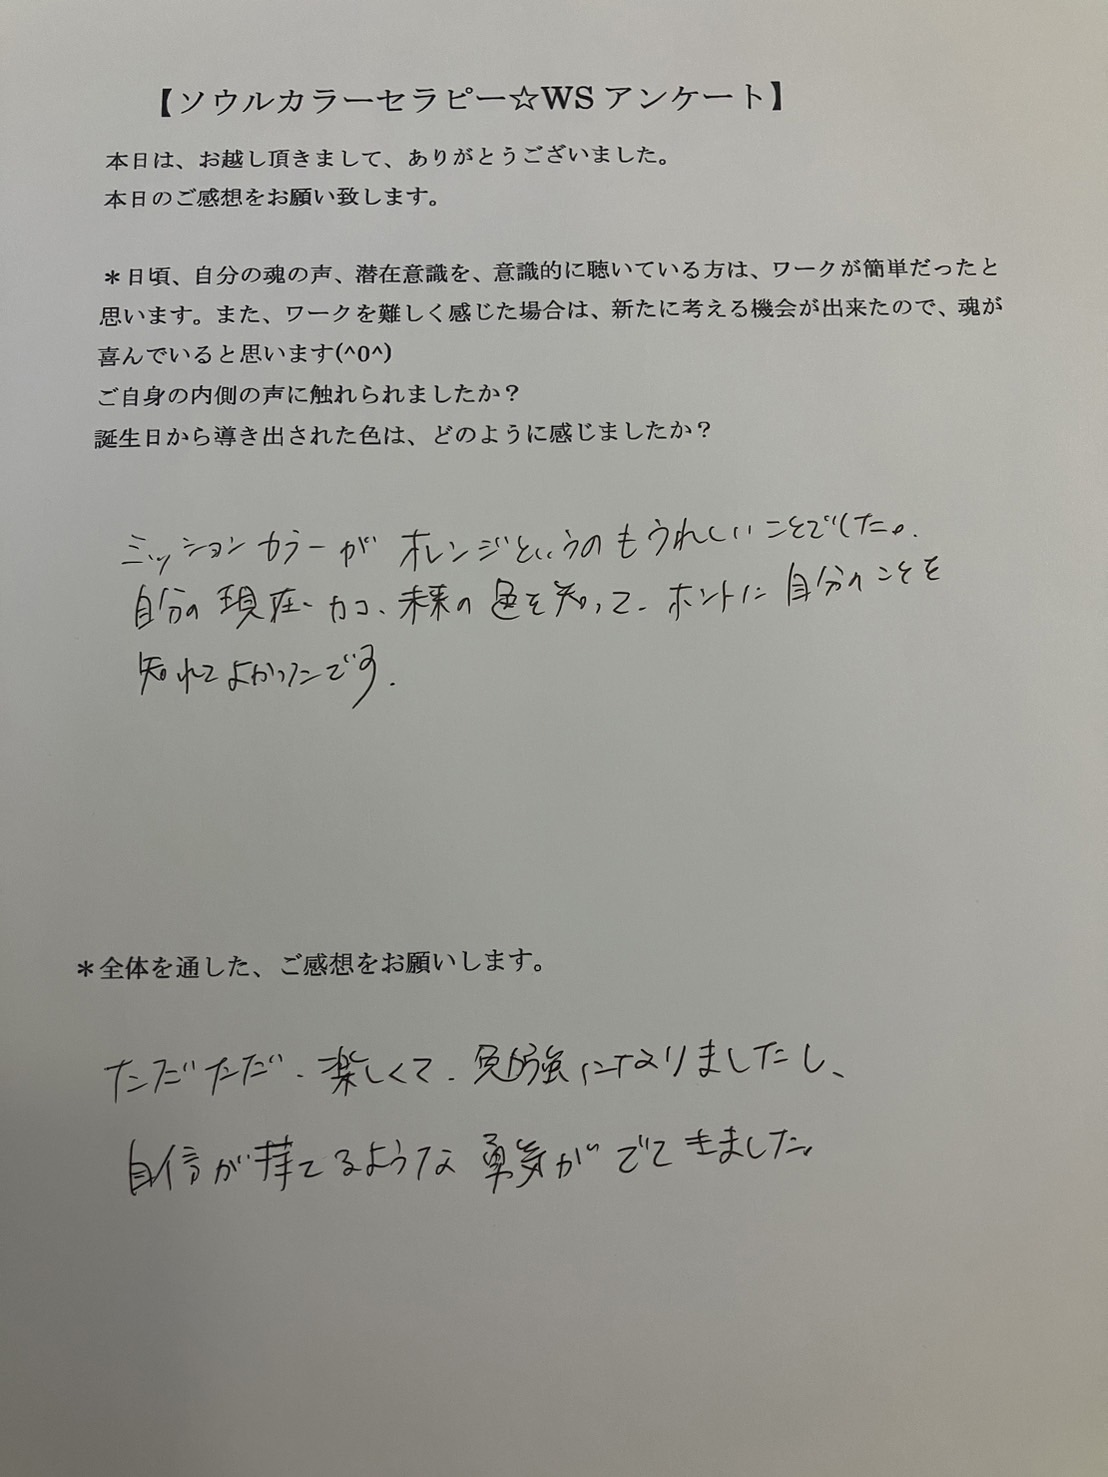 【ソウルカラーセラピー☆WS アンケート】
本日は、お越し頂きまして、ありがとうございました。
本日のご感想をお願い致します。
＊日頃、自分の魂の声、潜在意識を、意識的に聴いている方は、ワークが簡単だったと
思います。また、ワークを難しく感じた場合は、新たに考える機会が出来たので、魂が
喜んでいると思います(^0^)
ご自身の内側の声に触れられましたか？
誕生日から導き出された色は、どのように感じましたか？
ミッションカラーが オレンジというのもうれしいことでした。
自分の現在、カコ、未来の色を知って、ホントに自分のことを
知れてよかったです.
＊全体を通した、ご感想をお願いします。
ただただ、楽しくて、勉強になりましたし、
自信が持てるような勇気がでてきました。